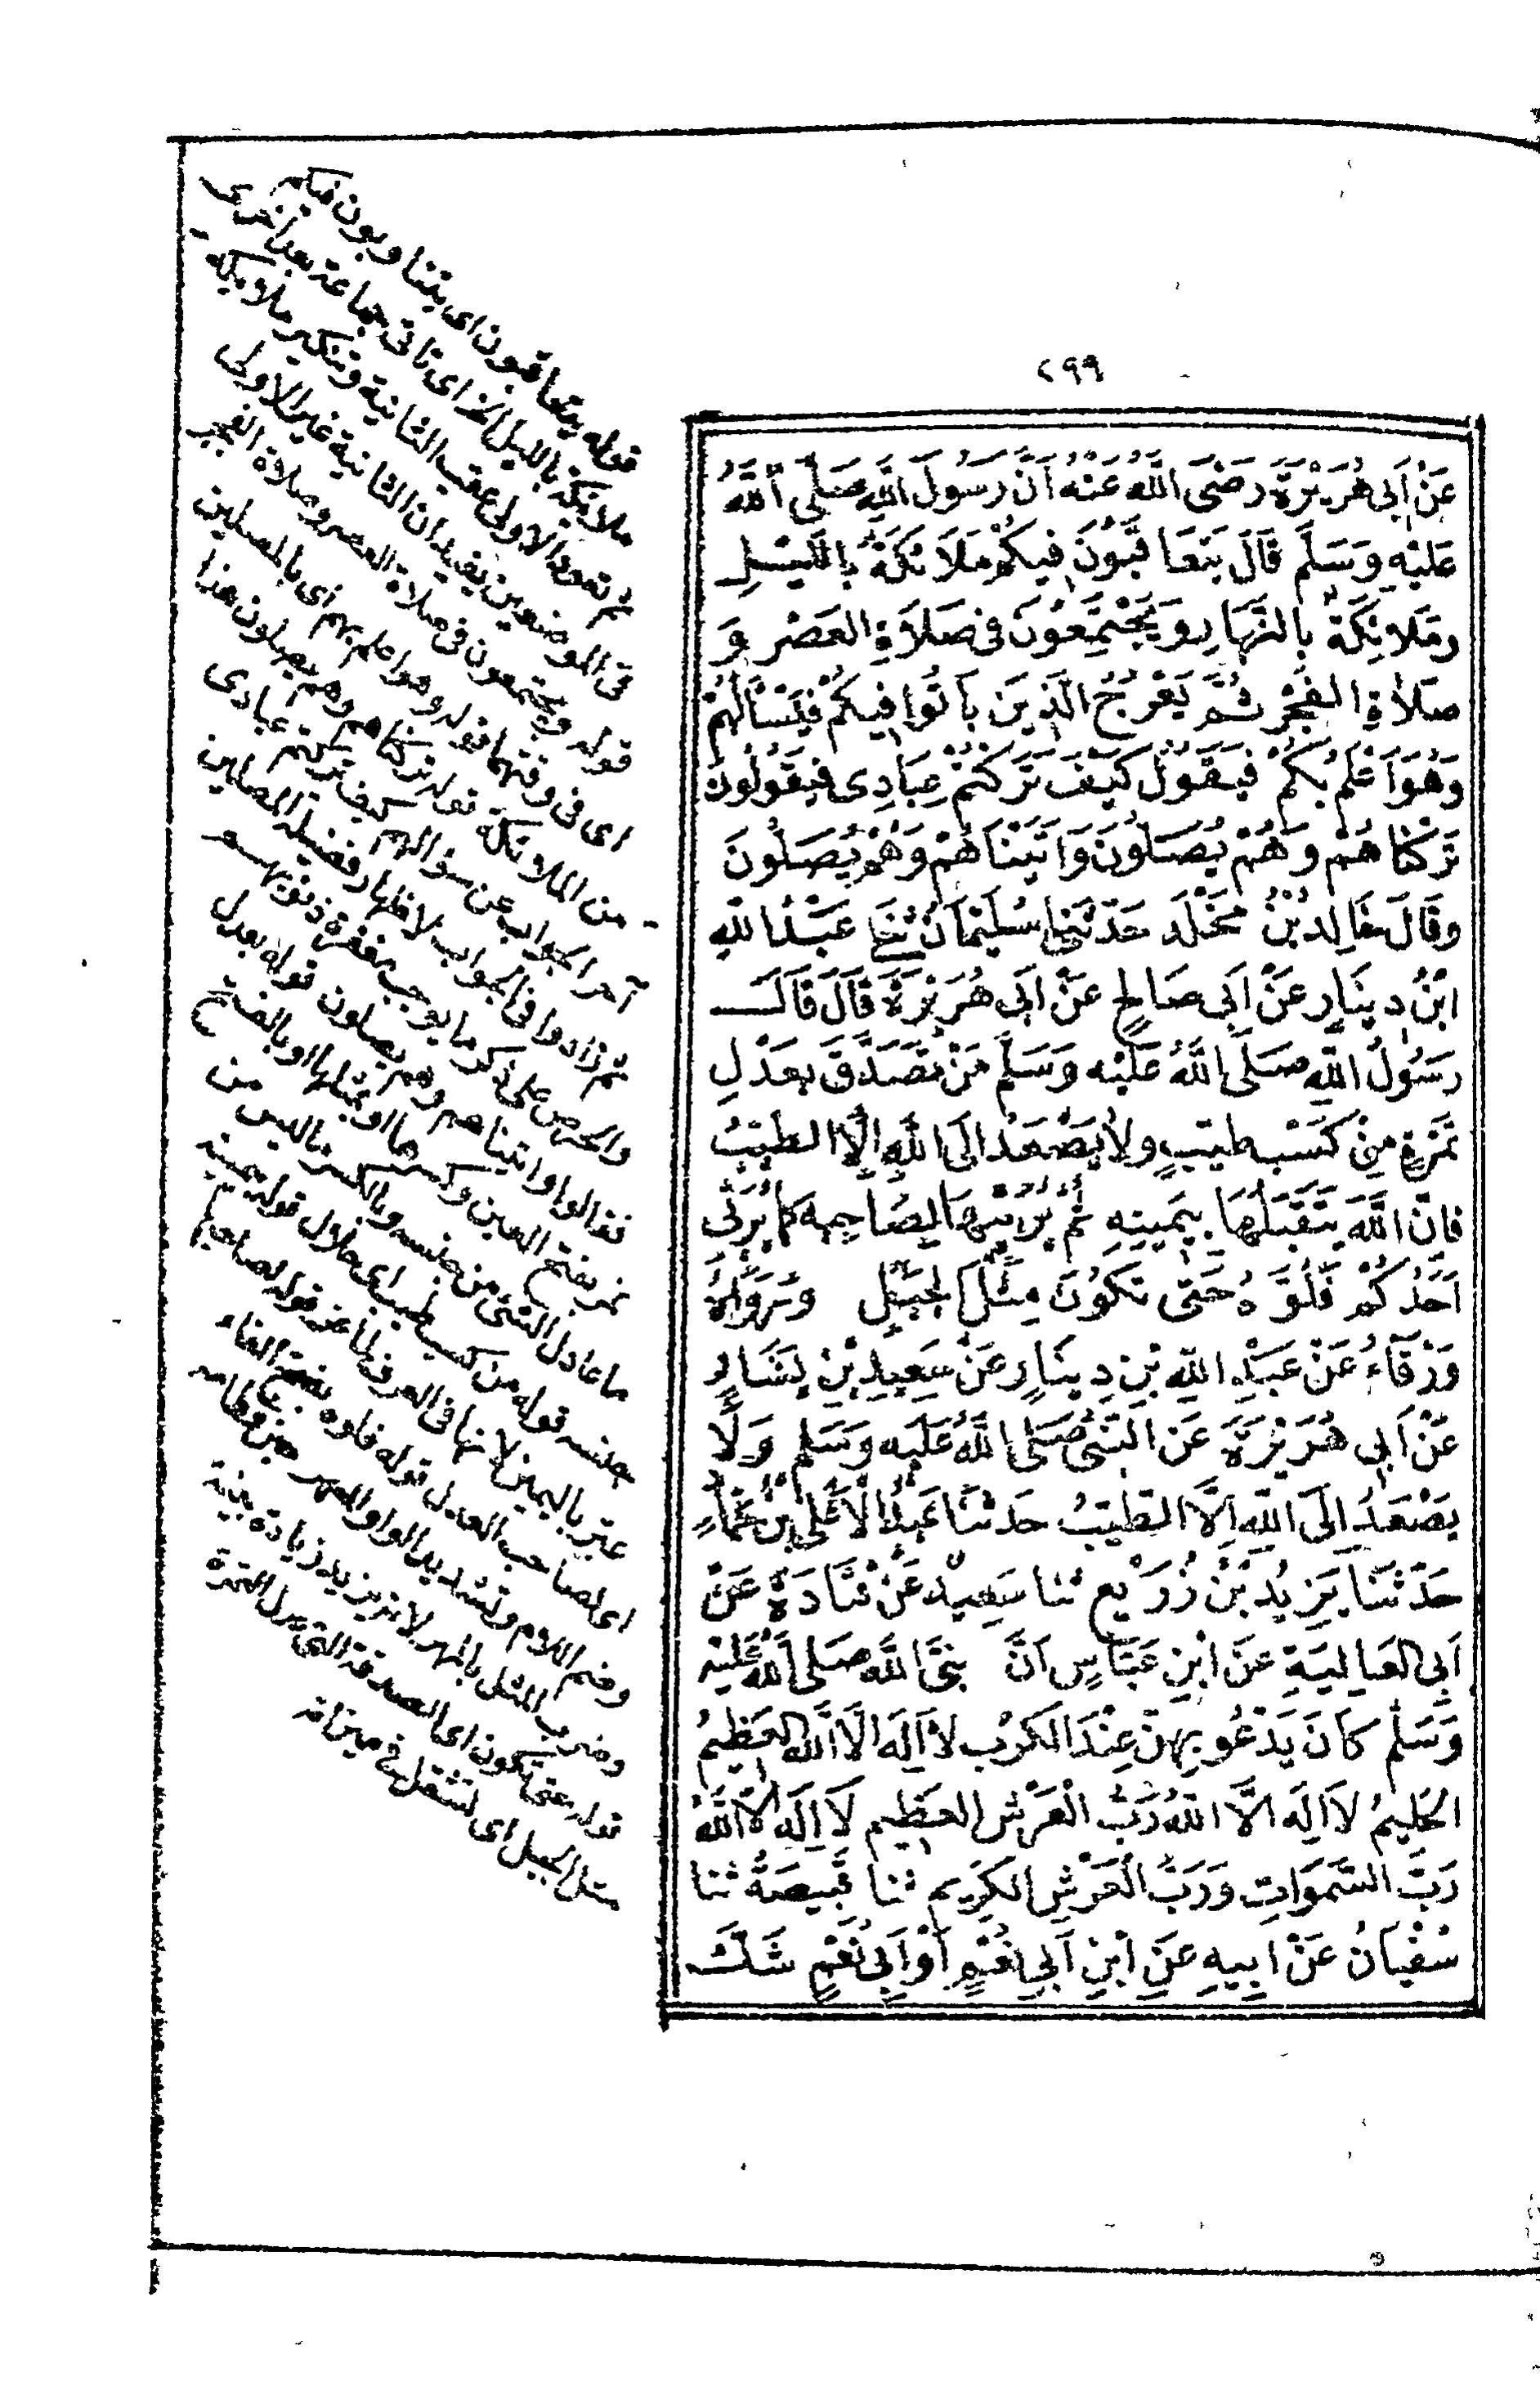 ٢٩٩
عَنْ أَبِي هُرَيْرَةَ رَضِيَ اللَّهُ عَنْهُ أَنَّ رَسُولَ اللَّهِ صَلَّى اللَّهُ
عَلَيْهِ وَسَلَّمَ قَالَ يَتَعَاقَبُونَ فِيكُمْ مَلَائِكَةٌ بِاللَّيْلِ
وملائِكَةٌ بِالنَّهَارِ وَيَجْتَمِعُونَ فِي صَلَاةِ العَصْرِ وَ
صَلَاةِ الفَجْرِ ثُمَّ يَعْرُجُ الَّذِينَ بَاتُوا فِيكُمْ فَيَسْأَلُهُمْ
وَهُوَ أَعْلَمُ بِكُمْ فَيَقُولُ كَيْفَ تَرَكْتُمْ عِبَادِي فَيَقُولُونَ
تَرَكْنَاهُمْ وَهُمْ يُصَلُّونَ وَأَتَيْنَاهُمْ وَهُمْ يُصَلُّونَ
وقَالَ خَالِدُ بْنُ مَخْلَدٍ حَدَّثَنِي سُلَيْمَانُ ثَنَا عَبْدُ اللهِ
ابْنُ دِينَارٍ عَنْ أَبِي صَالِحٍ عَنْ أَبِي هُرَيْرَةَ قَالَ قَالَ
رَسُولُ اللَّهِ صَلَّى اللَّهُ عَلَيْهِ وَسَلَّمَ مَنْ تَصَدَّقَ بِعَدْلِ
تَمْرَةٍ مِنْ كَسْبٍ طَيِّبٍ وَلَا يَصْعَدُ إِلَى اللَّهِ إِلَّا الطَّيِّبُ
فَإِنَّ اللَّهَ يَتَقَبَّلُهَا بِيَمِينِهِ ثُمَّ يُرَبِّيهَا لِصَاحِبِهِ كَمَا يُرَبِّي
أَحَدُكُمْ فَلُوَّهُ حَتَّى تَكُونَ مِثْلَ الجَبَلِ وَرَوَاهُ
وَرْقَاءُ عَنْ عَبْدِ اللَّهِ بْنِ دِينَارٍ عَنْ سَعِيدِ بْنِ يَسَارٍ
عَنْ أَبِي هُرَيْرَةَ عَنِ النَّبِيِّ صَلَّى اللَّهُ عَلَيْهِ وَسَلَّمَ وَلَا
يَصْعَدُ إِلَى اللَّهِ إِلَّا الطَّيِّبُ حَدَّثَنَا عَبْدُ الأَعْلَى بْنُ حَمَّادٍ
حَدَّثَنَا يَزِيدُ بْنُ زُرَيْعٍ ثنا سَعِيدٌ عَنْ قَتَادَةَ عَنْ
أَبِي العَالِيَةِ عَنِ ابْنِ عَبَّاسٍ أَنَّ نَبِيَّ اللَّهِ صَلَّى اللَّهُ عَلَيْهِ
وَسَلَّمَ كَانَ يَدْعُو بِهِنَّ عِنْدَ الكَرْبِ لَا إِلَهَ إِلَّا اللَّهُ العَظِيمُ
الحَلِيمُ لَا إِلَهَ إِلَّا اللَّهُ رَبُّ الْعَرْشِ العَظِيمِ لَا إِلَهَ إِلَّا اللَّهُ
رَبُّ السَّمَوَاتِ وَرَبُّ الْعَرْشِ الكَرِيمِ ثنا قَبِيصَةُ ثنا
سُفْيَانُ عَنْ أَبِيهِ عَنِ ابْنِ أَبِي نُعْمٍ أَوْ أَبِي نُعْمٍ شَكَّ
قوله يتعاقبون اى يتناوبون فيكم
ملائكة بالليل الخ اى تاتى جماعة بعد أخرى
ثم تعود الاولى عقب الثانية وتنكير ملائكة
فى الموضعين يفيد ان الثانية غير الاولى
قوله ويجتمعون فى صلاة العصر وصلاة الفجر
اى فى وقتهما قوله وهو اعلم بهم اى بالمصلين
من الملائكة قوله تركناهم وهم يصلون هذا
آخر الجواب عن سؤالهم كيف تركتم عبادى
ثم زادوا فى الجواب لاظهار فضيلة المصلين
والحرص على ذكر ما يوجب مغفرة ذنوبهم
فقالوا واتيناهم وهم يصلون قوله بعدل
تمر بفتح العين وكسرها او بمثلها او بالفتح
ما عادل الشئ من جنسه وبالكسر ما ليس من
جنسه قوله من كسب طيب اى حلال قوله بيمينه
عبر باليمين لانها فى العرف لما عز قوله لصاحبها
اى لصاحب العدل قوله فلوه بفتح الفاء
وضم اللام وتشديد الواو المهر حين فطامه
وضرب المثل بالمهر لانه يزيد زيادة بينة
قوله حتى تكون اى الصدقة التى عدل التمرة
مثل الجبل اى لتثقل فى ميزانه